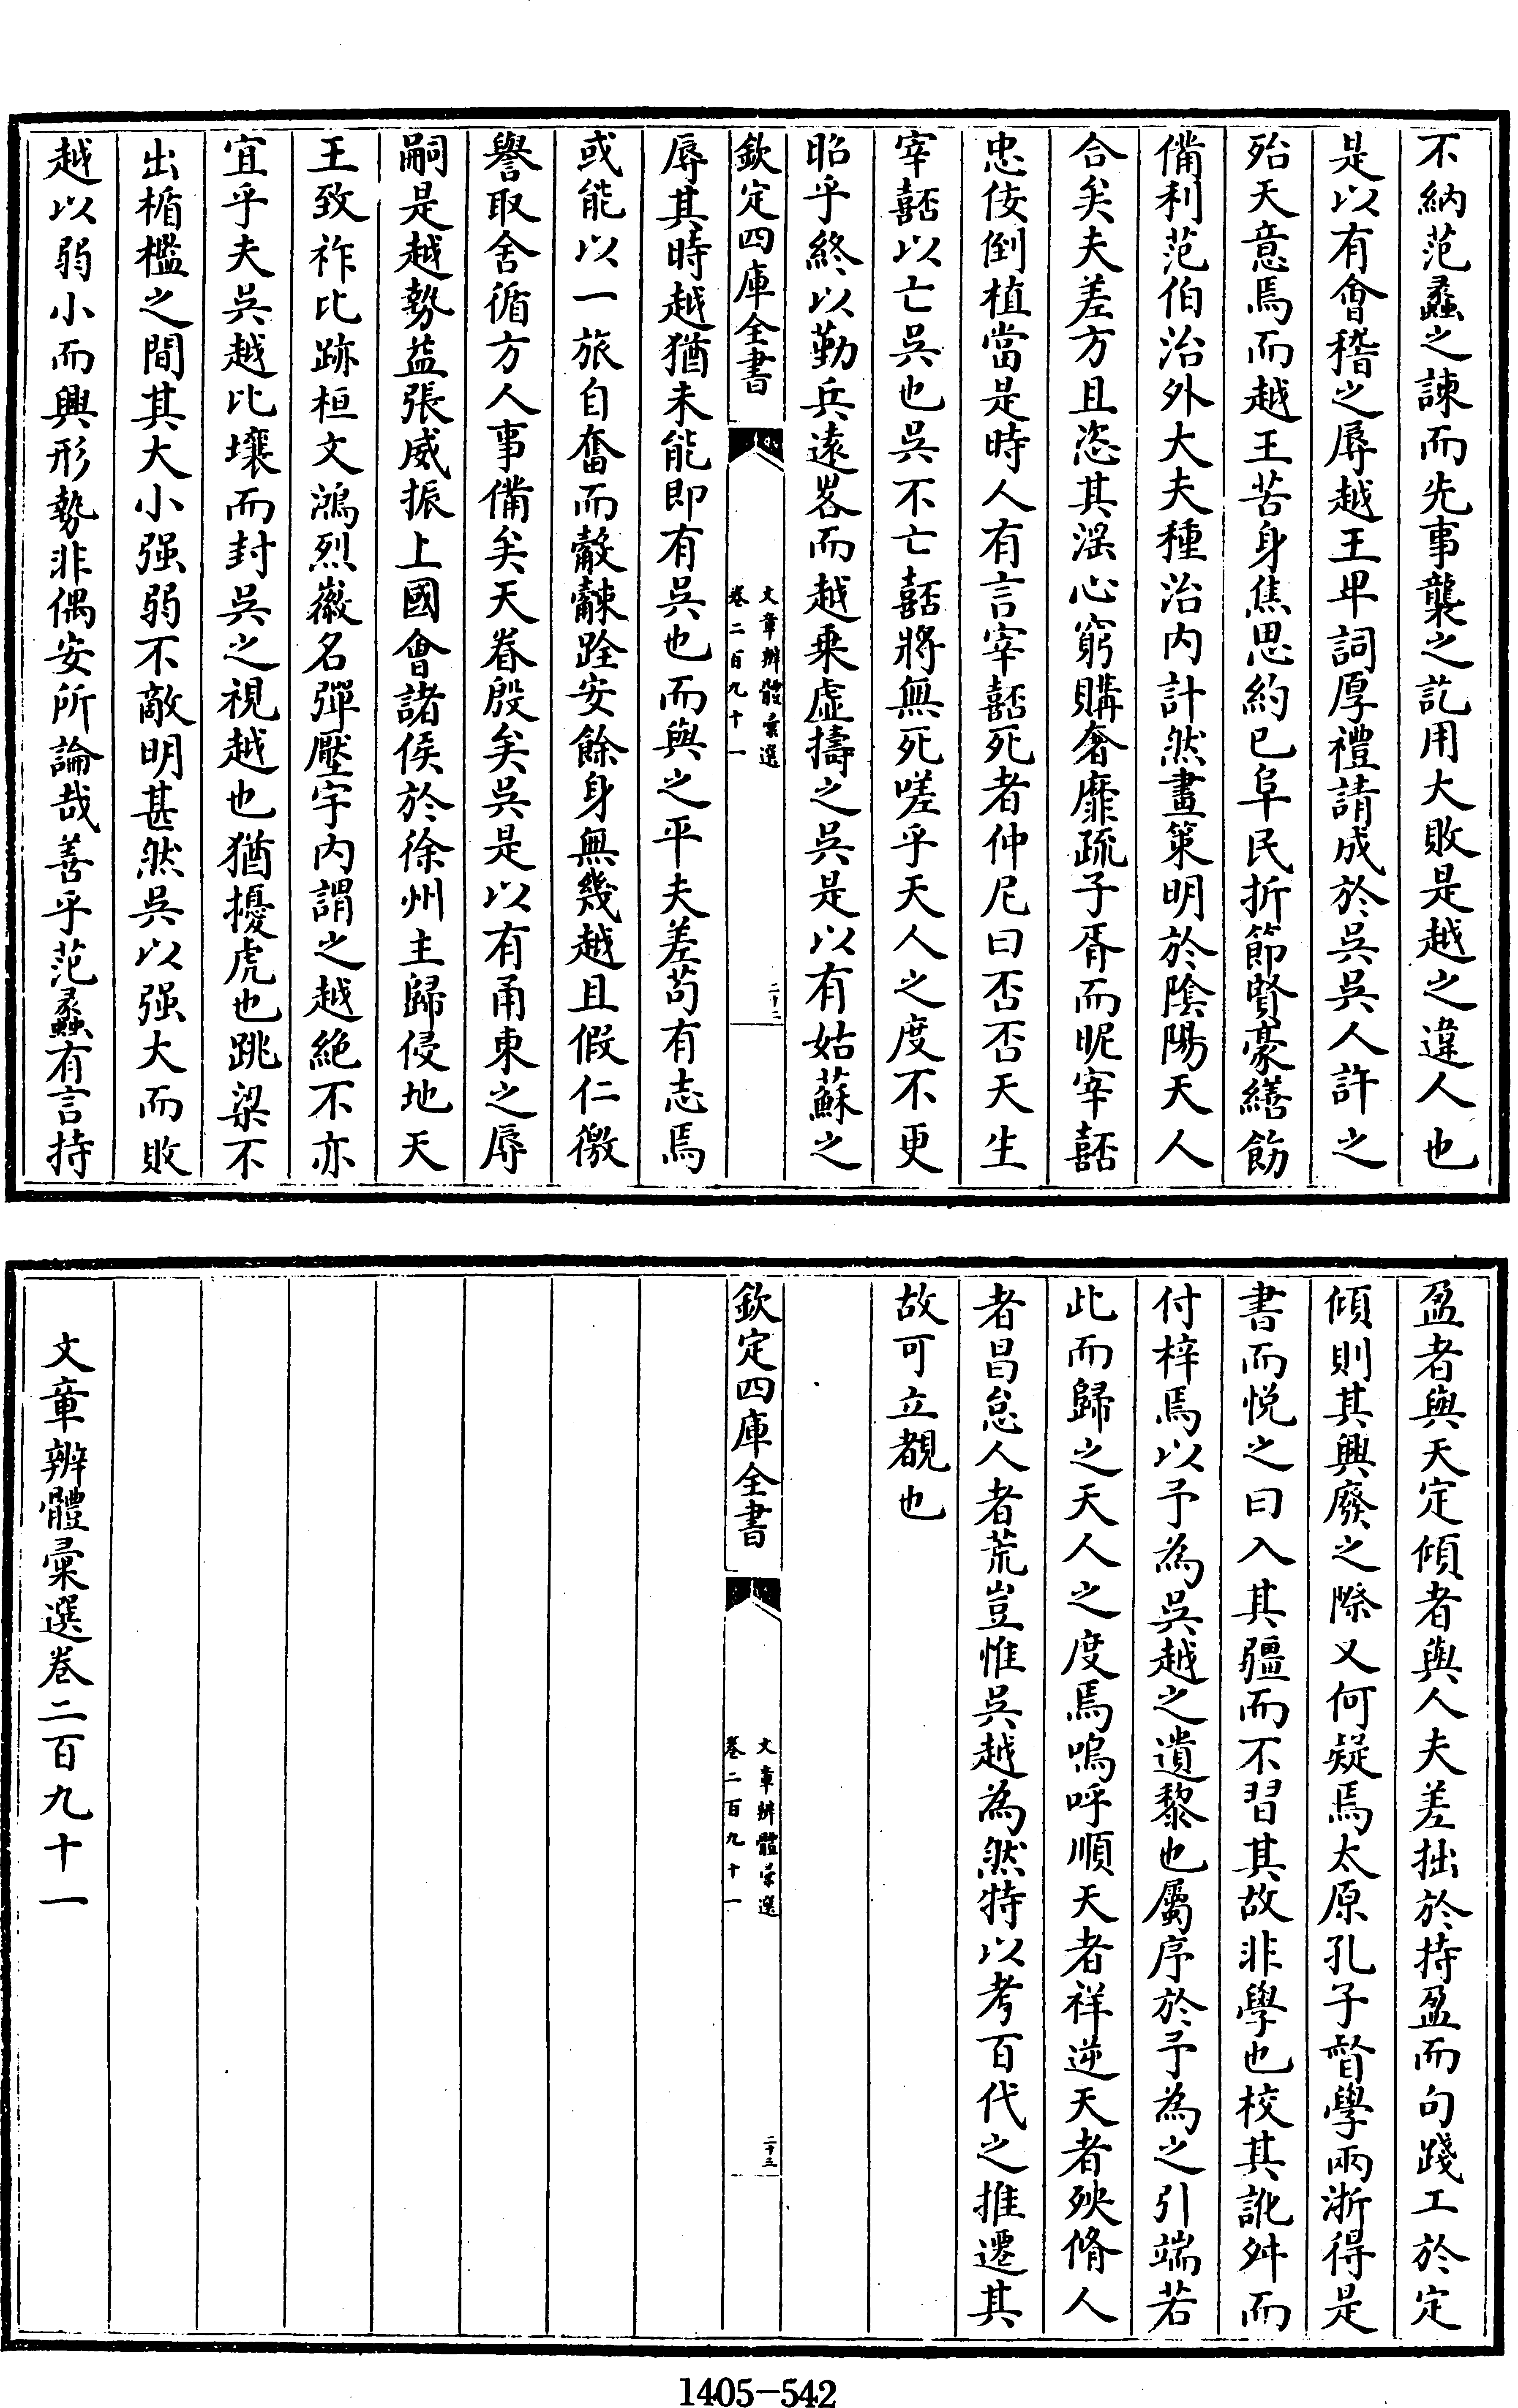 不納范蠡之諫而先事襲之訖用大敗是越之違人也
是以有會稽之辱越王卑詞厚禮請成於吳吳人許之
殆天意焉而越王苦身焦思約已阜民折節賢豪繕飭
備利范伯治外大夫種治内計然畫策明於陰陽天人
合矣夫差方且恣其滛心窮購奢靡疏子胥而昵宰嚭
忠佞倒植當是時人有言宰嚭死者仲尼曰否否天生
宰嚭以亡吳也吳不亡嚭將無死嗟乎天人之度不更
昭乎終以勤兵遠畧而越乘虛擣之吳是以有姑蘇之
欽定四庫全書
文章辨體彚選
卷二百九十一
二十二
辱其時越猶未能即有吳也而與之平夫差苟有志焉
或能以一旅自奮而觳觫跧安餘身無幾越且假仁徼
譽取舍循方人事備矣天眷殷矣吳是以有甬東之辱
嗣是越勢益張威振上國會諸侯於徐州主歸侵地天
王致祚比跡桓文鴻烈徽名彈壓宇内謂之越絶不亦
宜乎夫吳越比壤而封吳之視越也猶擾虎也跳梁不
出楯檻之間其大小强弱不敵明甚然吳以强大而敗
越以弱小而興形勢非偶安所論哉善乎范蠡有言持
盈者與天定傾者與人夫差拙於持盈而句踐工於定
傾則其興廢之際又何疑焉太原孔子督學兩浙得是
書而悦之曰入其疆而不習其故非學也校其訛舛而
付梓焉以予為吳越之遺黎也屬序於予為之引端若
此而歸之天人之度焉嗚呼順天者祥逆天者殃脩人
者昌怠人者荒豈惟吳越為然特以考百代之推遷其
故可立覩也
欽定四庫全書
文章辨體彚選
卷二百九十一
二十三
文章辨體彚選卷二百九十一
1405-542